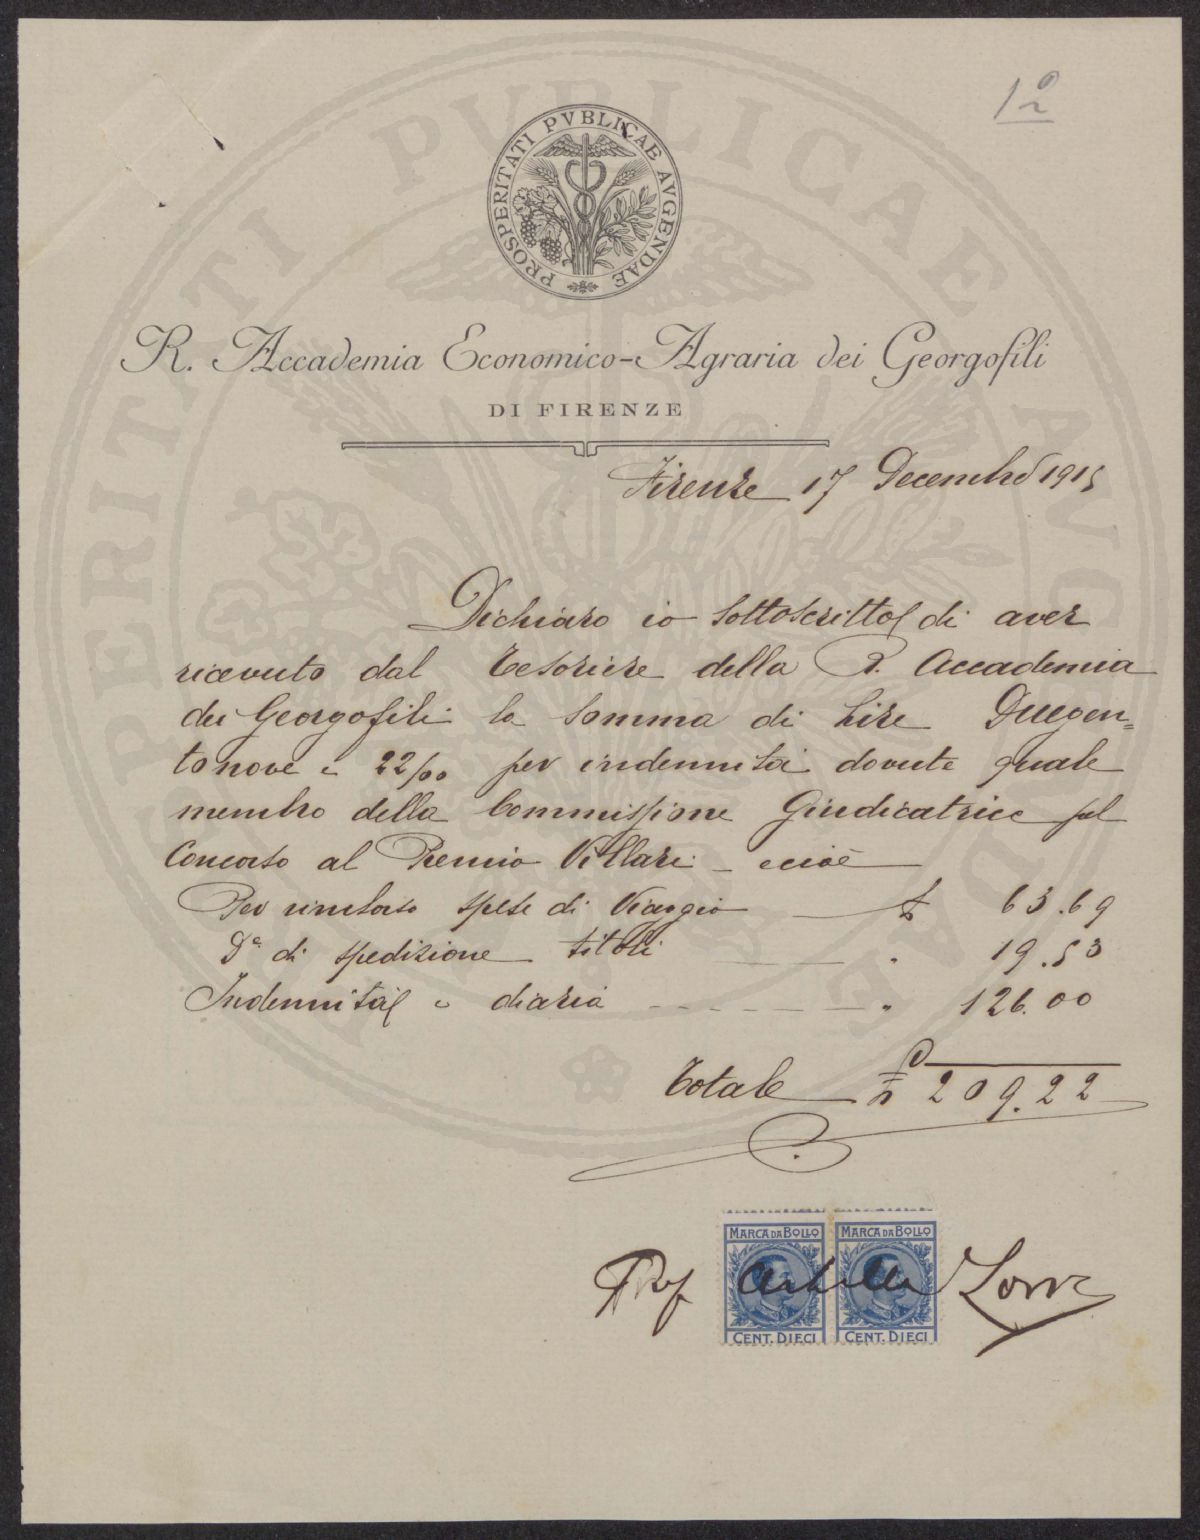 1º
PROSPERITATI PVBLICAE AVGENDAE
R. Accademia Economico-Agraria dei Georgofili
DI FIRENZE
Firenze 17 Decembre 1915
Dichiaro io sottoscritto di aver
ricevuto dal Tesoriere della R. Accademia
dei Georgofili la somma di Lire Duegen=
tonove e 22/00 per indennità dovute quale
membro della Commissione Giudicatrice pel
Concorso al Premio Villari - ecioè
Per rimborso spese di Viaggio — £ 63.69
Dº di spedizione titoli — " 19.53
Indennità e diaria — " 126.00
Totale £ 209.22
MARCA DA BOLLO MARCA DA BOLLO
Prof Achille
CENT. DIECI CENT. DIECI